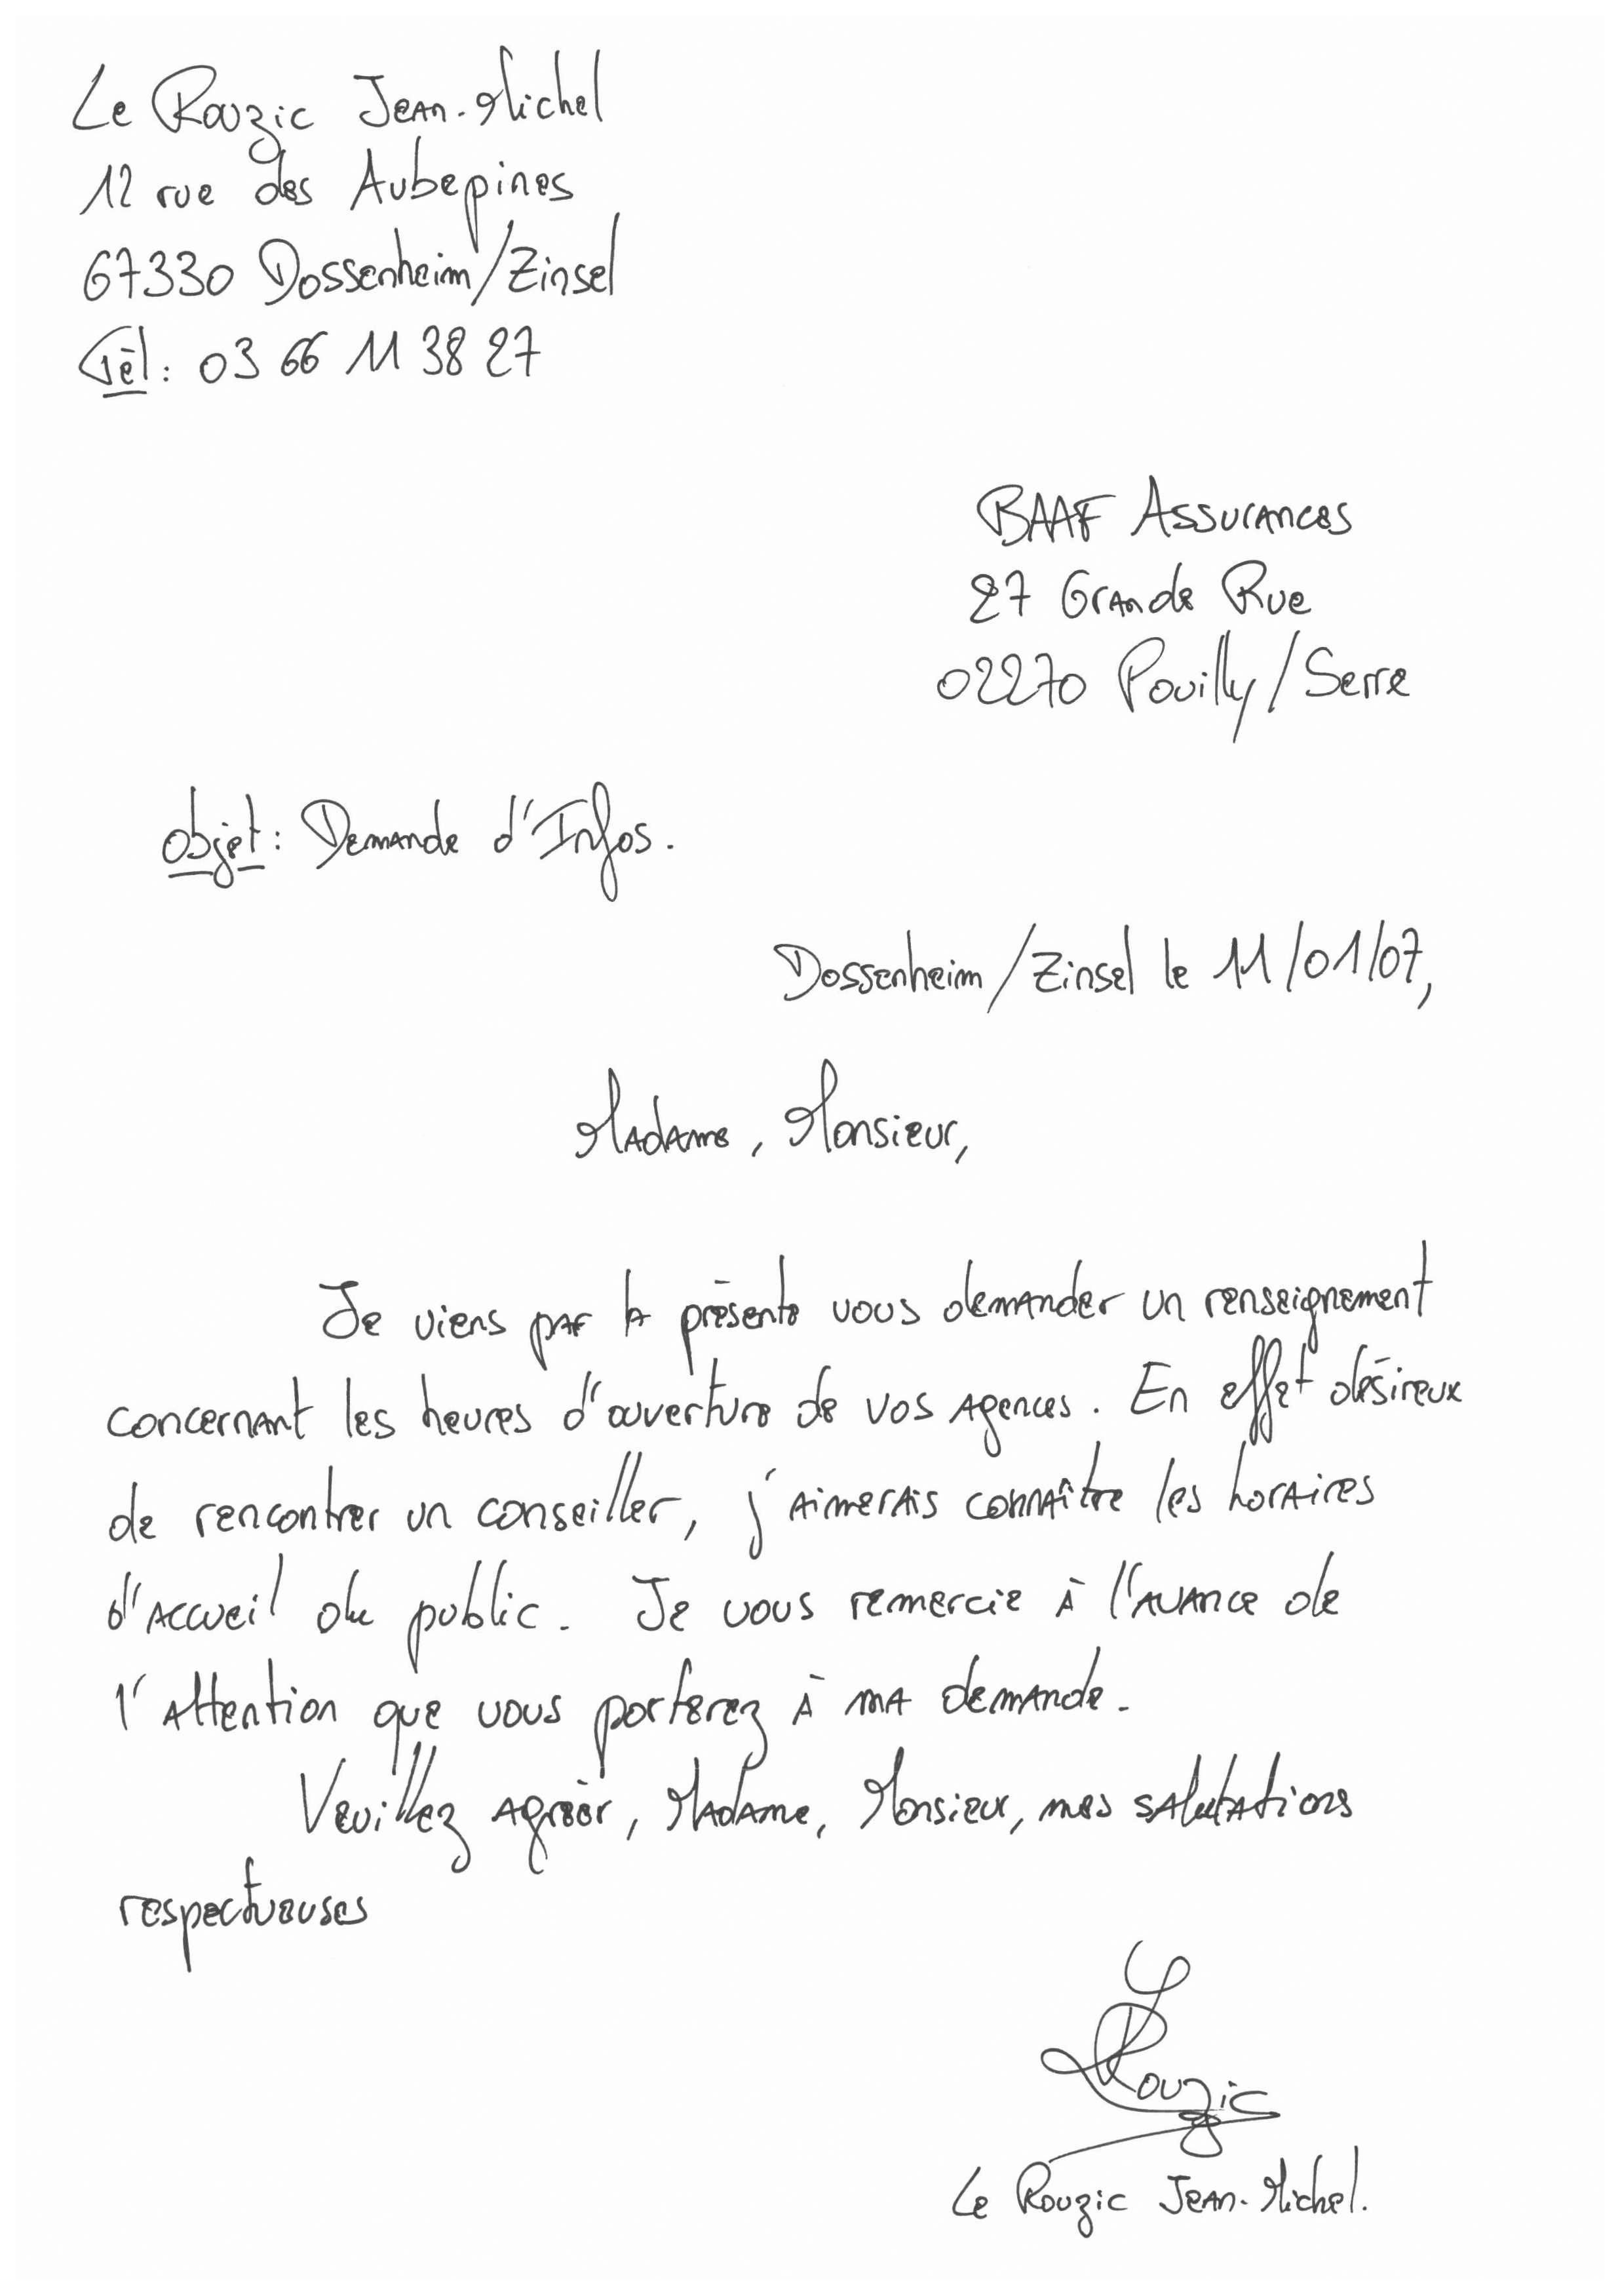 Le Rouzic Jean-Michel
12 rue des Aubepines
67330 Dossenheim/Zinsel
Tèl: 03 66 11 38 27
BAAF Assurances
27 Grande Rue
02270 Pouilly/Serre
Objet: Demande d'Infos.
Dossenheim/Zinsel le 11/01/07,
Madame, Monsieur,
Je viens par la présente vous demander un renseignement
concernant les heures d'ouverture de vos agences. En effet désireux
de rencontrer un conseiller, j'aimerais connaître les horaires
d'accueil du public. Je vous remercie à l'avance de
l'attention que vous porterez à ma demande.
Veuillez agréer, Madame, Monsieur, mes salutations
respectueuses
Le Rouzic
Le Rouzic Jean-Michel.